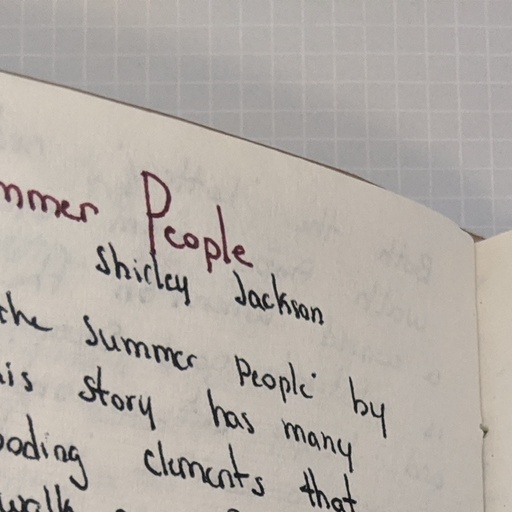 mmer People
Shirley Jackson
the Summer People by
is story has many
oding elements that
walk